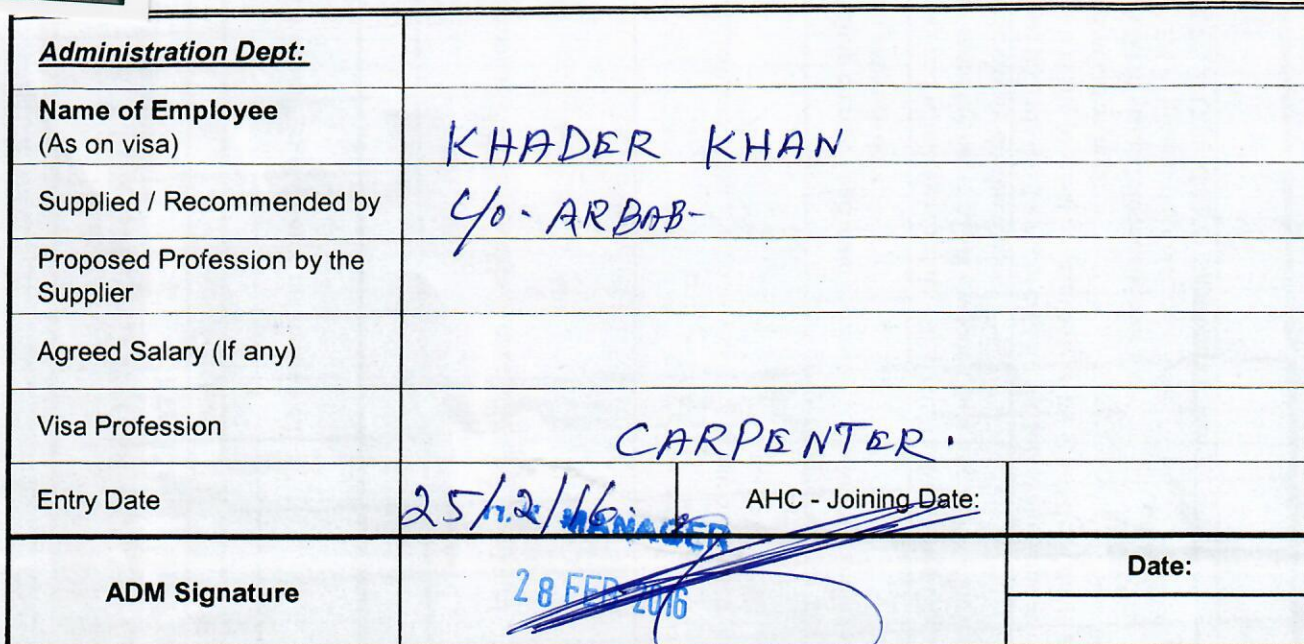 Administration Dept:
Name of Employee
(As on visa)
KHADER KHAN
Supplied / Recommended by
C/o. ARBAB-
Proposed Profession by the
Supplier
Agreed Salary (If any)
Visa Profession
CARPENTER.
Entry Date
25/2/16.
AHC - Joining Date:
MANAGER
ADM Signature
28 FEB 2016
Date: